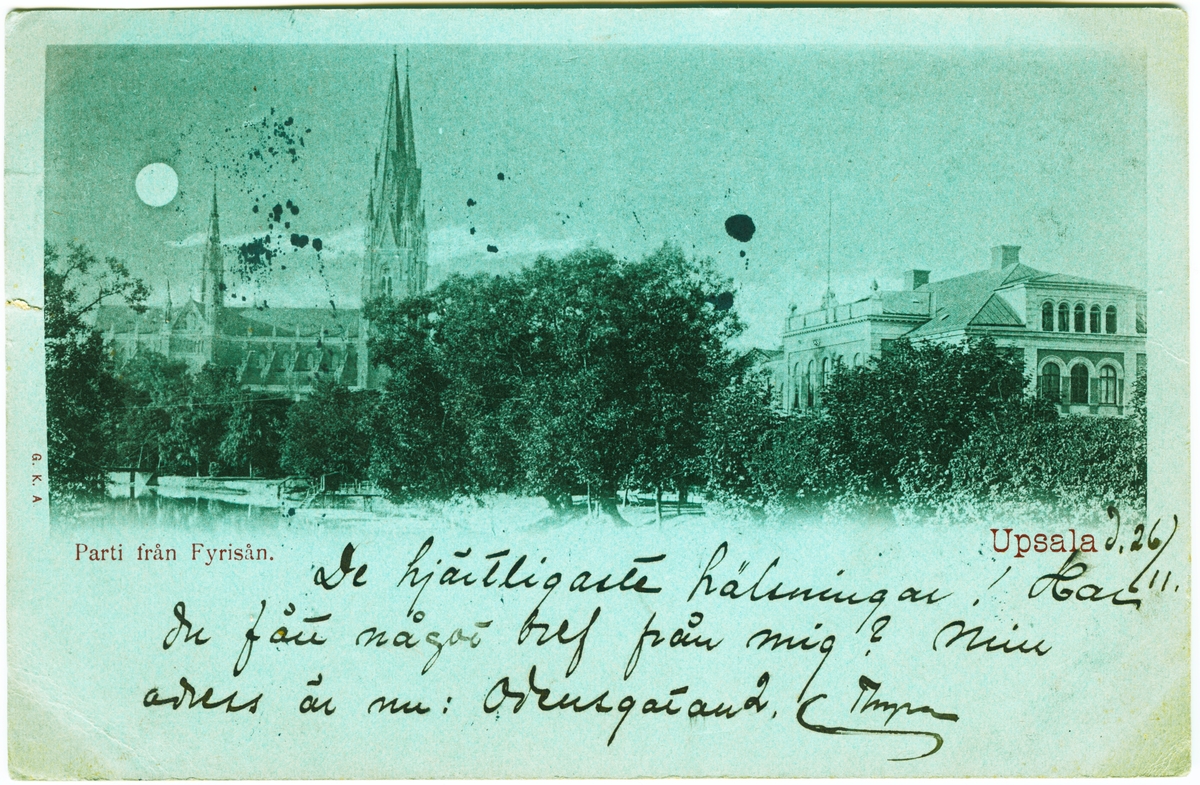 G. K. A
Parti från Fyrisån.
Upsala d. 26/11.
De hjärtligaste hälsningar! Har
du fått något bref från mig? Min
adress är nu: Odensgatan 2. Thyra